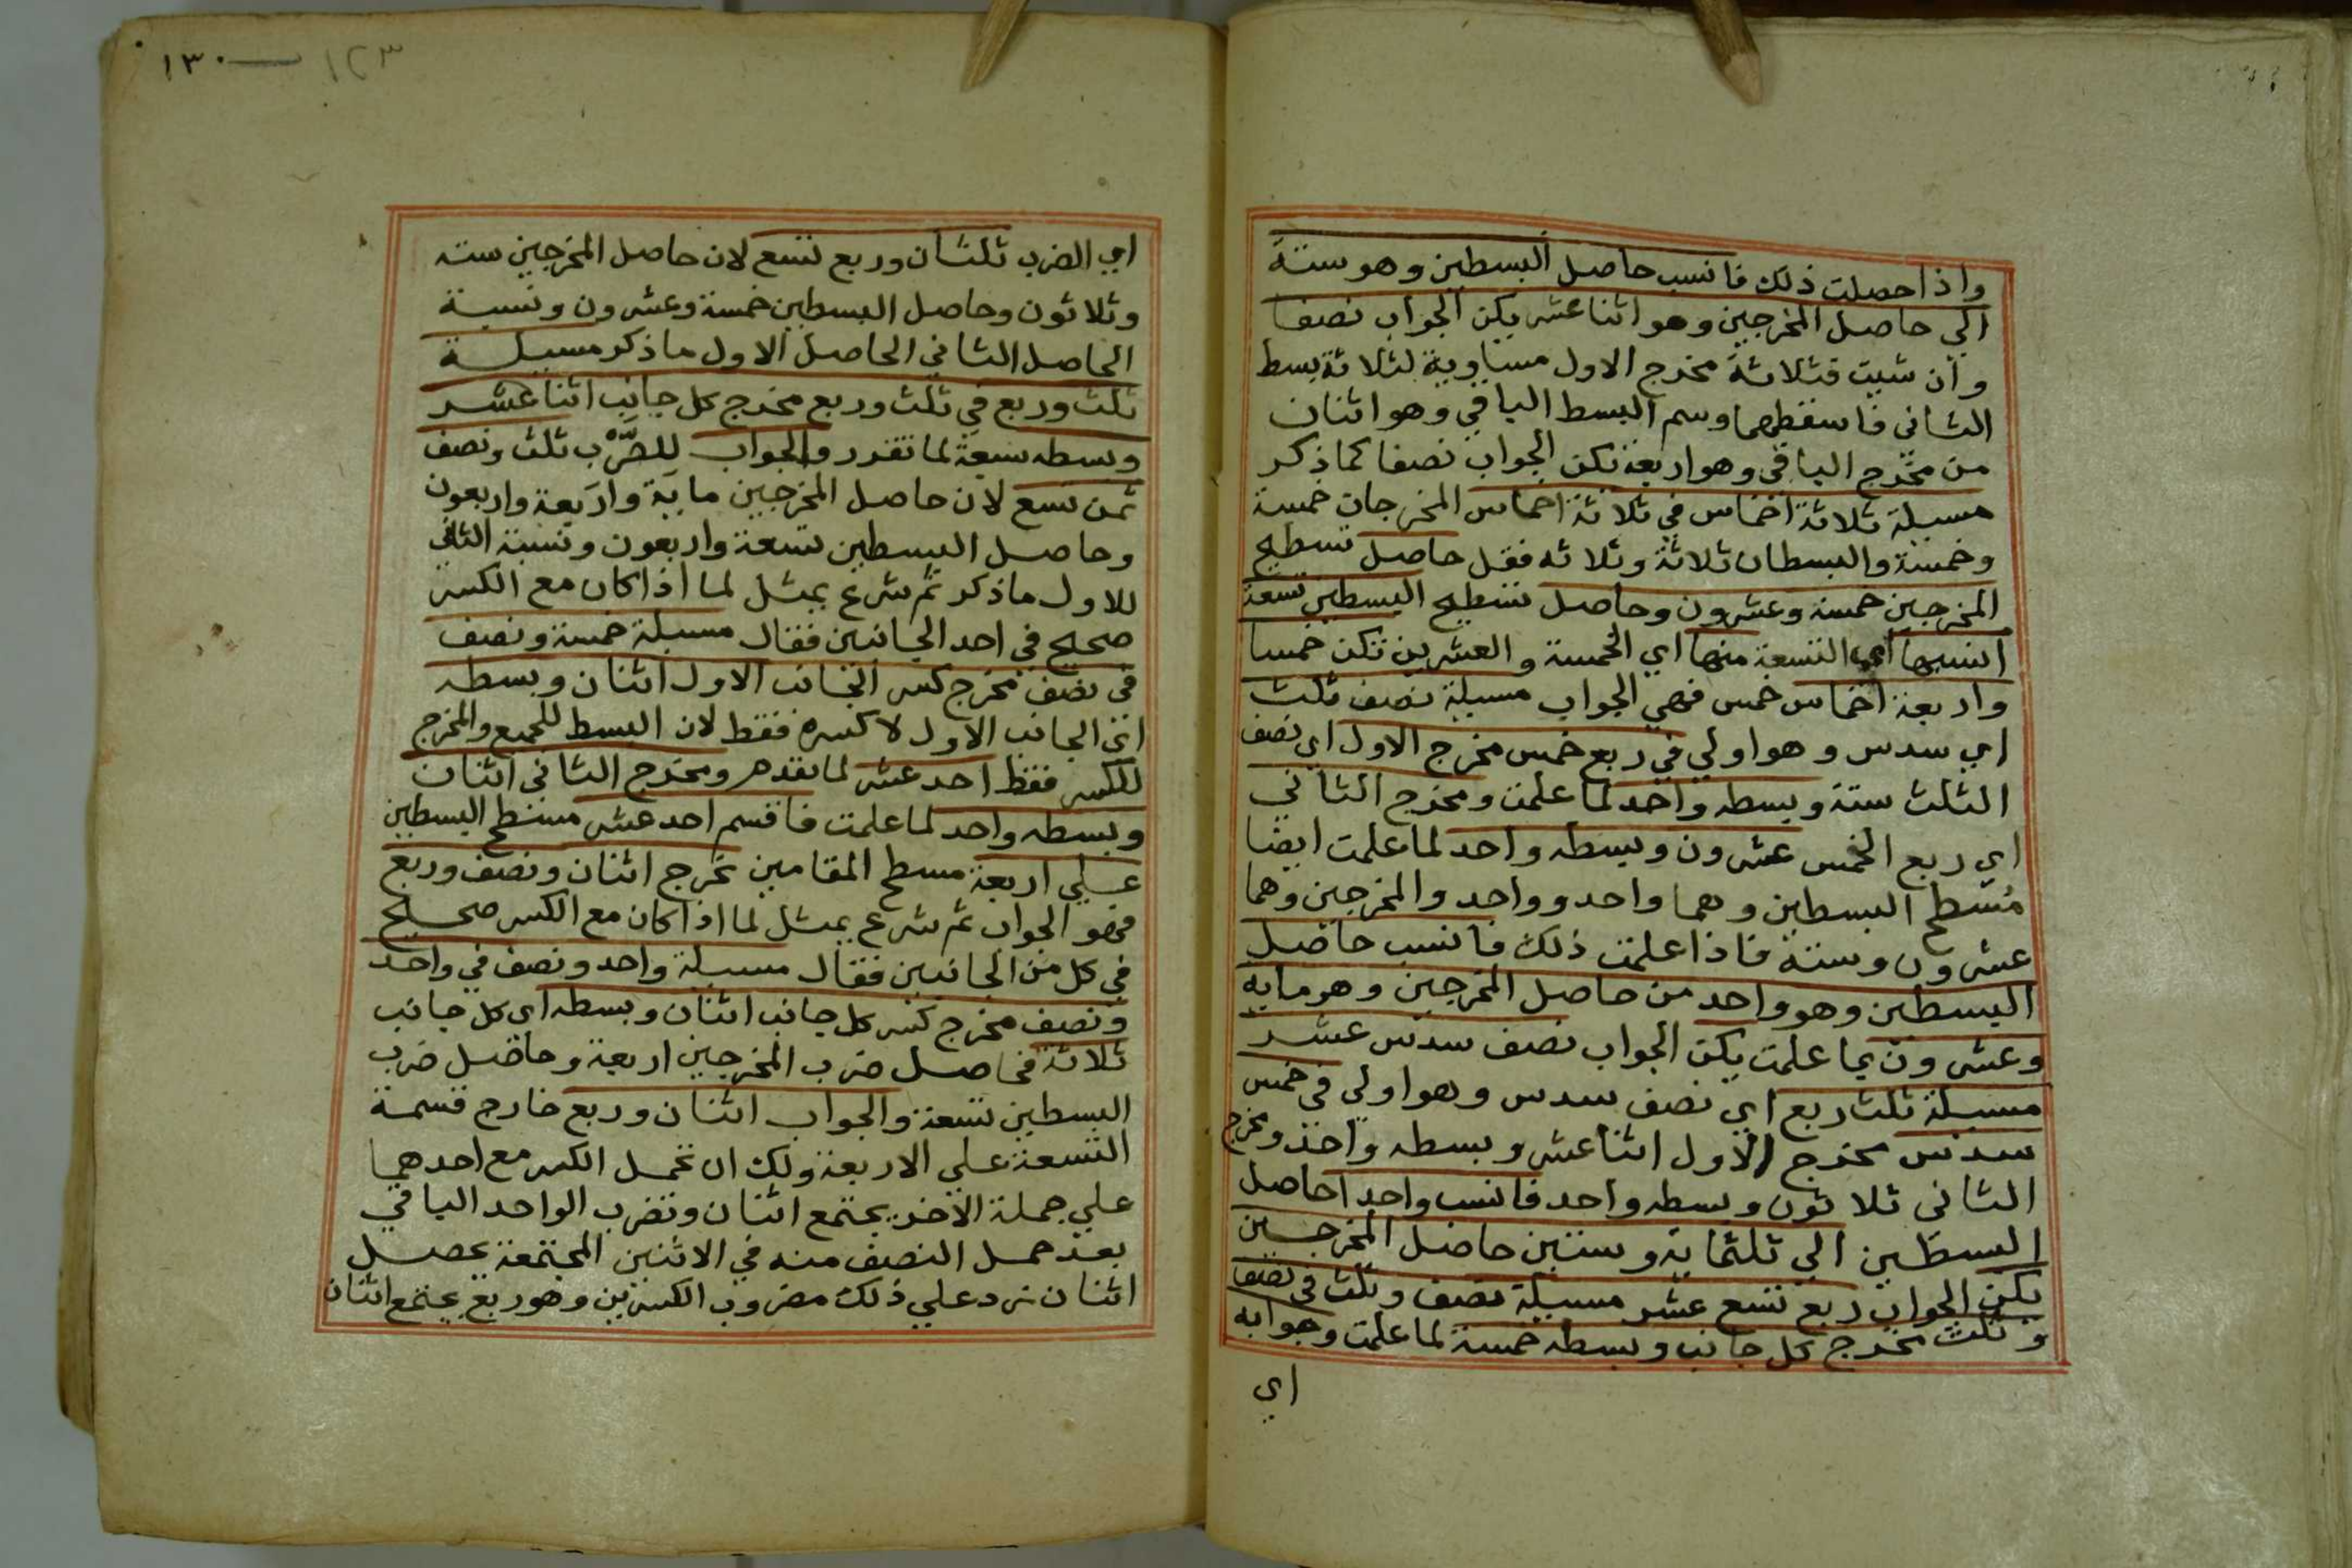 واذا حصلت ذلك فانسب حاصل البسطين وهو ستة
الي حاصل المخرجين وهو اثنا عشر يكن الجواب نصفا
وان شيت فثلاثة مخرج الاول مساوية لثلاثة بسط
الثاني فاسقطهما وسم البسط الباقي وهو اثنان
من مخرج الباقي وهو اربعة تكن الجواب نصفا كما ذكر
مسيلة ثلاثة اخماس في ثلاثة اخماس المخرجات خمسة
وخمسة والبسطان ثلاثة وثلاثه فقل حاصل تسطيح
المخرجين خمسة وعشرون وحاصل تسطيح البسطين تسعة
انسبها اي التسعة منها اي الخمسة والعشرين تكن خمسا
واربعة اخماس خمس فهي الجواب مسيلة نصف ثلث
اي سدس وهو اولي في ربع خمس مخرج الاول اي نصف
الثلث ستة وبسطه واحد لما علمت ومخرج الثاني
اي ربع الخمس عشرون وبسطه واحد لما علمت ايضا
مُسَطح البسطين وهما واحد وواحد والمخرجين وهما
عشرون وستة فاذا علمت ذلك فانسب حاصل
البسطين وهو واحد من حاصل المخرجين وهو مايه
وعشرون بما علمت يكن الجواب نصف سدس عشر
مسيلة ثلث ربع اي نصف سدس وهو اولي في خمس
سدس مخرج الاول اثنا عشر وبسطه واحد ومخرج
الثاني ثلاثون وبسطه واحد فانسب واحدا حاصل
البسطين الي ثلثماية وستين حاصل المخرجين
يكن الجواب ربع تسع عشر مسيلة نصف وثلث في نصف
وثلث مخرج كل جانب وبسطه خمسة لما علمت وجوابه
اي
١٣٠ ١٢٣
اي الضرب ثلثان وربع تسع لان حاصل المخرجين سته
وثلاثون وحاصل البسطين خمسة وعشرون ونسبة
الحاصل الثاني الحاصل الاول ما ذكر مسيلة
ثلث وربع في ثلث وربع مخرج كل جانب اثنا عشر
وبسطه سبعة لما تقرر والجواب للضَّرْب ثلث ونصف
ثمن تسع لان حاصل المخرجين ماية واربعة واربعون
وحاصل البسطين تسعة واربعون ونسبة الثاني
للاول ما ذكر ثم شرع يمثل لما اذا كان مع الكسر
صحيح في احد الجانبين فقال مسيلة خمسة ونصف
في نصف مخرج كسر الجانب الاول اثنان وبسطه
اي الجانب الاول لا كسره فقط لان البسط للجميع والمخرج
للكسر فقط احد عشر لما تقدم ومخرج الثاني اثنان
وبسطه واحد لما علمت فاقسم احد عشر مسطح البسطين
علي اربعة مسطح المقامين تخرج اثنان ونصف وربع
فهو الجواب ثم شرع يمثل لما اذا كان مع الكسر صحيح
في كل من الجانبين فقال مسيلة واحد ونصف في واحد
ونصف مخرج كسر كل جانب اثنان وبسطه اي كل جانب
ثلاثة فحاصل ضرب المخرجين اربعة وحاصل ضرب
البسطين تسعة والجواب اثنان وربع خارج قسمة
التسعة علي الاربعة ولك ان تحمل الكسر مع احدهما
علي جملة الاخر يجتمع اثنان وتضرب الواحد الباقي
بعد حمل النصف منه في الاثنين المجتمعة يحصل
اثنان زد علي ذلك مضروب الكسرين وهو ربع يجتمع اثنان